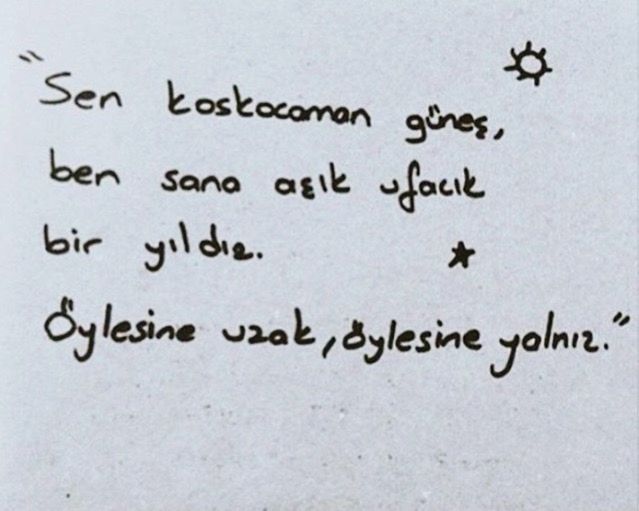 "Sen koskocaman güneş,
ben sana aşık ufacık
bir yıldız.
Öylesine uzak, öylesine yalnız."